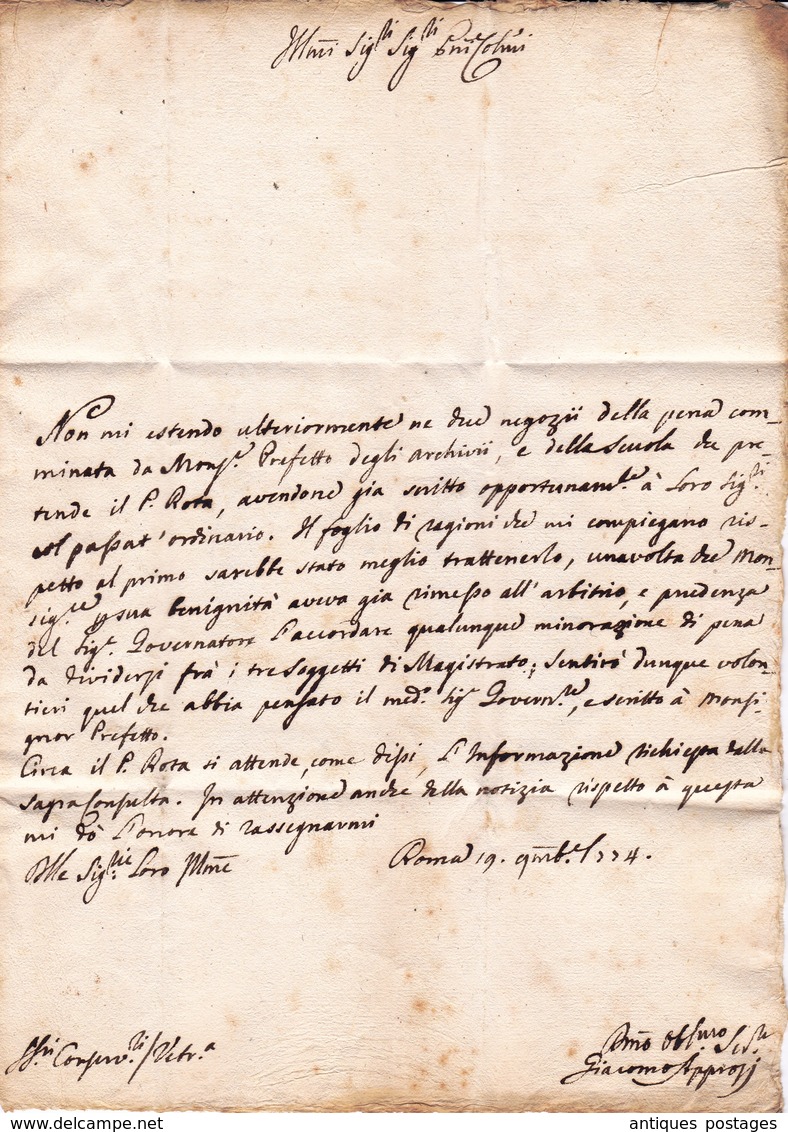 Illmi Sig.ri Sig.ri Pni Colmi
Non mi estendo ulteriormente ne due negozii della pena com-
minata da Monsr. Prefetto degli Archivii, e della Scuola che pre-
tende il P. Rota, avendone gia scritto opportunam.te à Loro Sig.ri
col passat'ordinario. Il foglio di ragioni che mi compiegano ris-
petto al primo sarebbe stato meglio trattenerlo, unavolta che Mon-
sig.re p sua benignità aveva gia rimesso all'arbitrio, e prudenza
del Sigr. Governatore l'accordare qualunque minorazione di pena
da dividersi frà i tre Soggetti di Magistrato; Sentirò dunque volon-
tieri quel che abbia pensato il med.o Sigr Govern.re, e scritto à Monsi-
gnor Prefetto.
Circa il P. Rota si attende, come dissi, l'Informazione richiesta dalla
Sagra Consulta. In attenzione anche della notizia rispetto à questa
mi dò l'onore di rassegnarmi
Alle Sig.rie Loro Illme
Roma 19. 9mb.e 1774.
SSri Conserv.ri / Vetr.a
Dmo Obl.mo Ser.re
Giacomo Approsj
antiques postages